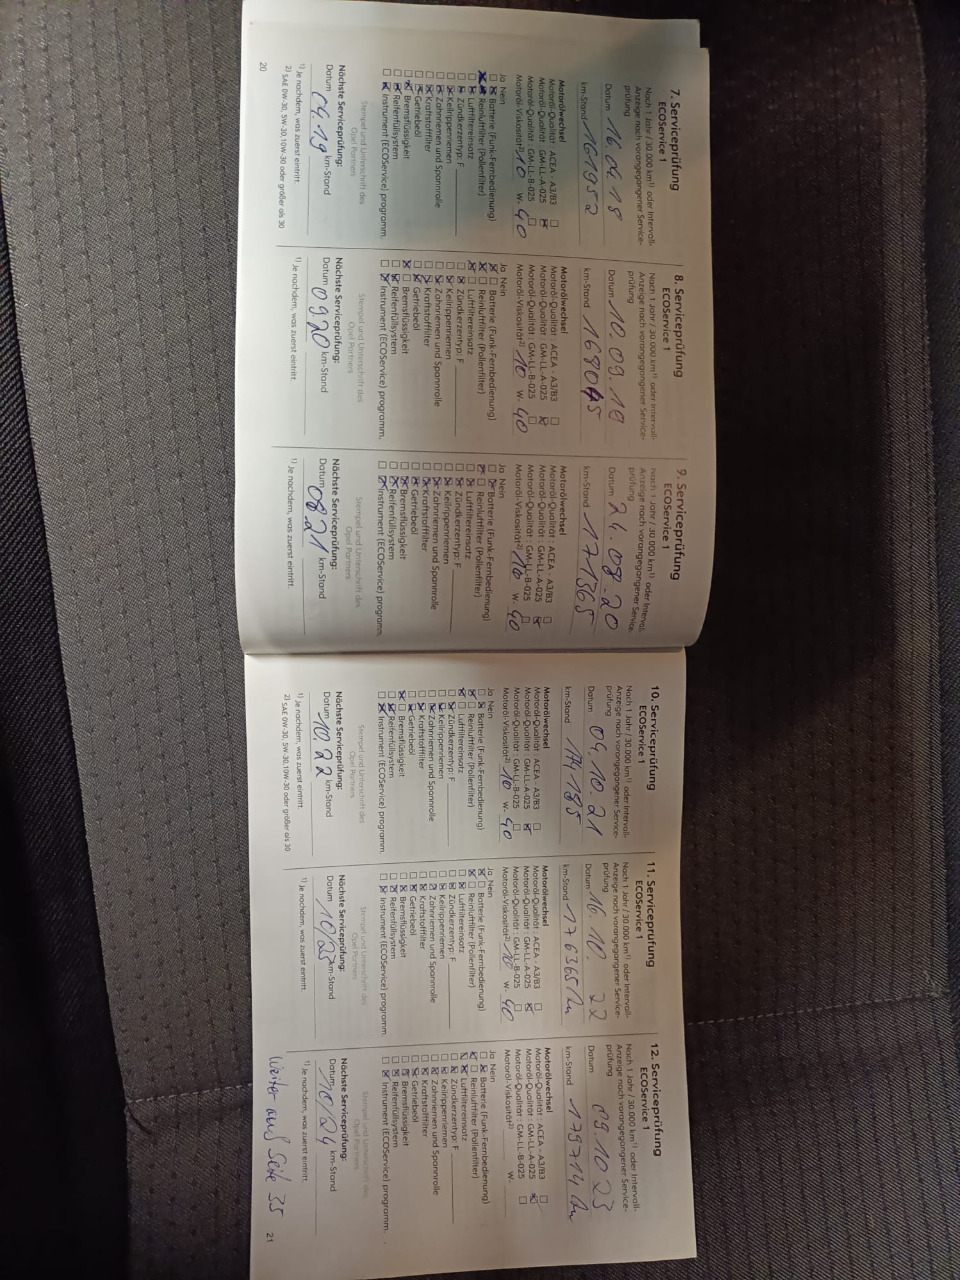 7. Serviceprüfung
ECOService 1
Nach 1 Jahr / 30.000 km¹⁾ oder Intervall-
Anzeige nach vorangegangener Service-
prüfung
Datum 16.04.18
km-Stand 161952
Motorölwechsel
Motoröl-Qualität: ACEA - A3/B3
Motoröl-Qualität: GM-LL-A-025
Motoröl-Qualität: GM-LL-B-025
Motoröl-Viskosität²⁾ 10 W- 40
Ja Nein
Batterie (Funk-Fernbedienung)
Reinluftfilter (Pollenfilter)
Luftfiltereinsatz
Zündkerzentyp: F
Keilrippenriemen
Zahnriemen und Spannrolle
Kraftstofffilter
Getriebeöl
Bremsflüssigkeit
Reifenfüllsystem
Instrument (ECOService) programm.
Stempel und Unterschrift des
Opel Partners
Nächste Serviceprüfung:
Datum 04.19 km-Stand
1) Je nachdem, was zuerst eintritt.
2) SAE 0W-30, 5W-30,10W-30 oder größer als 30
20
8. Serviceprüfung
ECOService 1
Nach 1 Jahr / 30.000 km¹⁾ oder Intervall-
Anzeige nach vorangegangener Service-
prüfung
Datum 10.09.19
km-Stand
Motorölwechsel
Motoröl-Qualität: ACEA - A3/B3
Motoröl-Qualität: GM-LL-A-025
Motoröl-Qualität: GM-LL-B-025
Motoröl-Viskosität²⁾ 10 W- 40
Ja Nein
Batterie (Funk-Fernbedienung)
Reinluftfilter (Pollenfilter)
Luftfiltereinsatz
Zündkerzentyp: F
Keilrippenriemen
Zahnriemen und Spannrolle
Kraftstofffilter
Getriebeöl
Bremsflüssigkeit
Reifenfüllsystem
Instrument (ECOService) programm.
Stempel und Unterschrift des
Opel Partners
Nächste Serviceprüfung:
Datum 09.20 km-Stand
1) Je nachdem, was zuerst eintritt.
9. Serviceprüfung
ECOService 1
Nach 1 Jahr / 30.000 km¹⁾ oder Intervall-
Anzeige nach vorangegangener Service-
prüfung
Datum 24.08.20
km-Stand 171365
Motorölwechsel
Motoröl-Qualität: ACEA - A3/B3
Motoröl-Qualität: GM-LL-A-025
Motoröl-Qualität: GM-LL-B-025
Motoröl-Viskosität²⁾ 10 W- 40
Ja Nein
Batterie (Funk-Fernbedienung)
Reinluftfilter (Pollenfilter)
Luftfiltereinsatz
Zündkerzentyp: F
Keilrippenriemen
Zahnriemen und Spannrolle
Kraftstofffilter
Getriebeöl
Bremsflüssigkeit
Reifenfüllsystem
Instrument (ECOService) programm.
Stempel und Unterschrift des
Opel Partners
Nächste Serviceprüfung:
Datum 08.21 km-Stand
1) Je nachdem, was zuerst eintritt.
10. Serviceprüfung
ECOService 1
Nach 1 Jahr / 30.000 km¹⁾ oder Intervall-
Anzeige nach vorangegangener Service-
prüfung
Datum 04.10.21
km-Stand 174185
Motorölwechsel
Motoröl-Qualität: ACEA - A3/B3
Motoröl-Qualität: GM-LL-A-025
Motoröl-Qualität: GM-LL-B-025
Motoröl-Viskosität²⁾ 10 W- 40
Ja Nein
Batterie (Funk-Fernbedienung)
Reinluftfilter (Pollenfilter)
Luftfiltereinsatz
Zündkerzentyp: F
Keilrippenriemen
Zahnriemen und Spannrolle
Kraftstofffilter
Getriebeöl
Bremsflüssigkeit
Reifenfüllsystem
Instrument (ECOService) programm.
Stempel und Unterschrift des
Opel Partners
Nächste Serviceprüfung:
Datum 10.22 km-Stand
1) Je nachdem, was zuerst eintritt.
2) SAE 0W-30, 5W-30,10W-30 oder größer als 30
11. Serviceprüfung
ECOService 1
Nach 1 Jahr / 30.000 km¹⁾ oder Intervall-
Anzeige nach vorangegangener Service-
prüfung
Datum 16.10.22
km-Stand 176365 km
Motorölwechsel
Motoröl-Qualität: ACEA - A3/B3
Motoröl-Qualität: GM-LL-A-025
Motoröl-Qualität: GM-LL-B-025
Motoröl-Viskosität²⁾ 10 W- 40
Ja Nein
Batterie (Funk-Fernbedienung)
Reinluftfilter (Pollenfilter)
Luftfiltereinsatz
Zündkerzentyp: F
Keilrippenriemen
Zahnriemen und Spannrolle
Kraftstofffilter
Getriebeöl
Bremsflüssigkeit
Reifenfüllsystem
Instrument (ECOService) programm.
Stempel und Unterschrift des
Opel Partners
Nächste Serviceprüfung:
Datum 10/23 km-Stand
1) Je nachdem, was zuerst eintritt.
12. Serviceprüfung
ECOService 1
Nach 1 Jahr / 30.000 km¹⁾ oder Intervall-
Anzeige nach vorangegangener Service-
prüfung
Datum 09 10 23
km-Stand 179714 km
Motorölwechsel
Motoröl-Qualität: ACEA - A3/B3
Motoröl-Qualität: GM-LL-A-025
Motoröl-Qualität: GM-LL-B-025
Motoröl-Viskosität²⁾ W-
Ja Nein
Batterie (Funk-Fernbedienung)
Reinluftfilter (Pollenfilter)
Luftfiltereinsatz
Zündkerzentyp: F
Keilrippenriemen
Zahnriemen und Spannrolle
Kraftstofffilter
Getriebeöl
Bremsflüssigkeit
Reifenfüllsystem
Instrument (ECOService) programm.
Stempel und Unterschrift des
Opel Partners
Nächste Serviceprüfung:
Datum 10/24 km-Stand
1) Je nachdem, was zuerst eintritt.
Weiter auf Seite 35
21